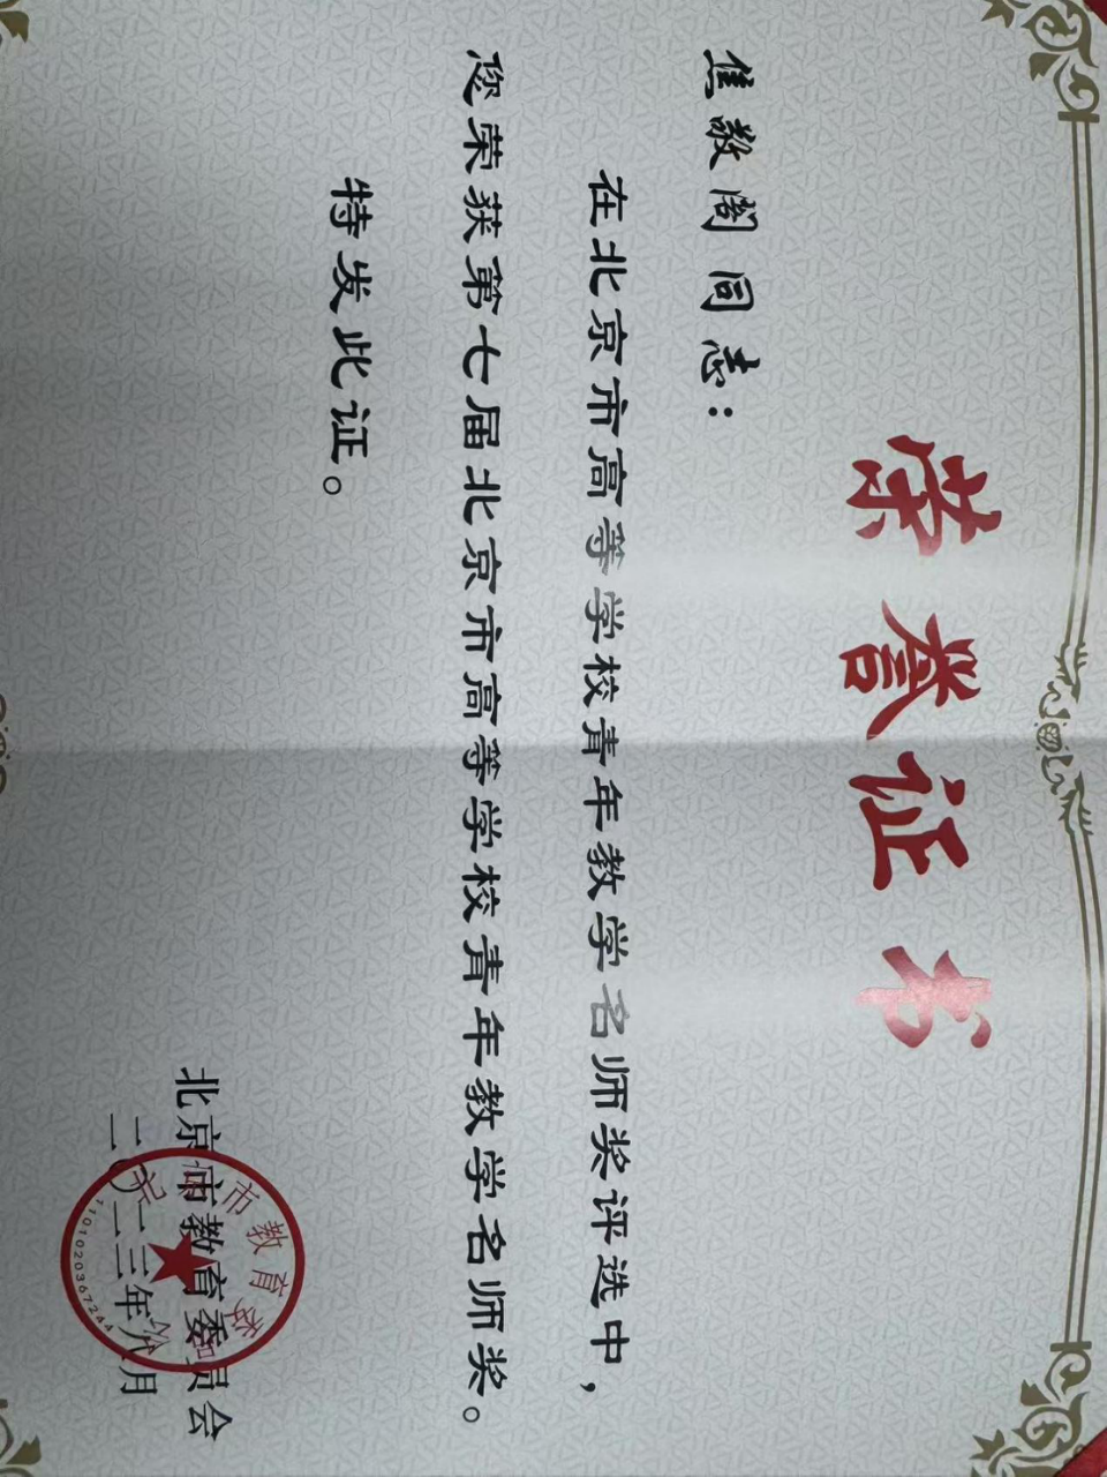 荣誉证书
焦敬阁同志：
在北京市高等学校青年教学名师奖评选中，
您荣获第七届北京市高等学校青年教学名师奖。
特发此证。
北京市教育委员会
二〇二三年九月
市教育委
1101020367244